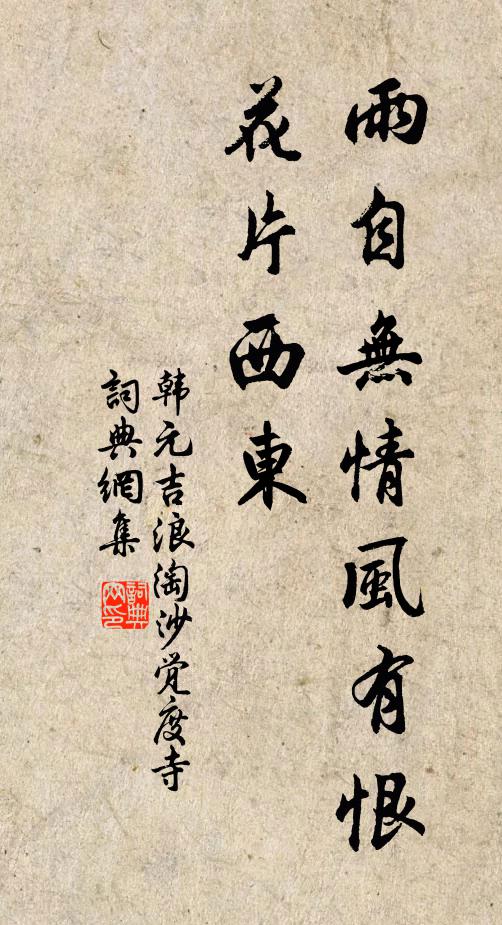 雨自無情風有恨
花片西東
韩元吉浪淘沙觉度寺
詞典網集
詞典網印